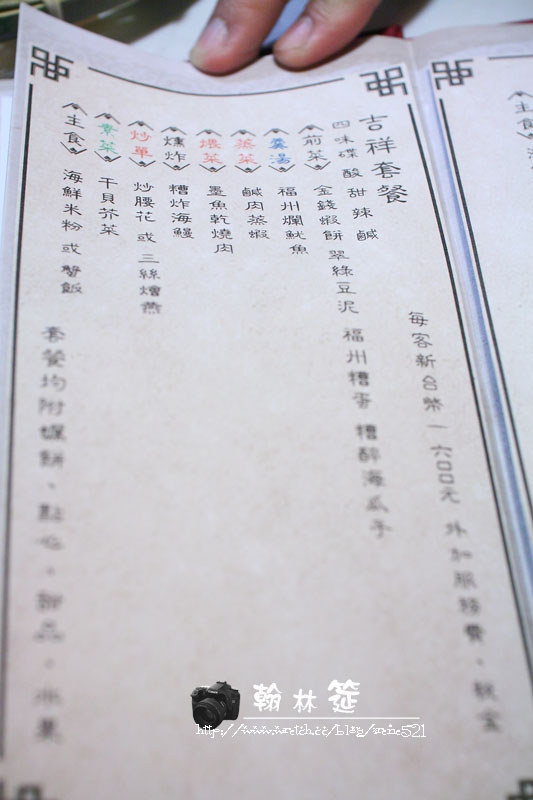 吉祥套餐
每客新台幣一六〇〇元 外加服務費、稅金
四味碟 酸 甜 辣 鹹
前菜 金錢蝦餅 翠綠豆泥 福州糟蛋 糟醉海瓜子
羹湯 福州爛魷魚
蒸菜 鹹肉蒸蝦
煨菜 墨魚乾燒肉
燻炸 糟炸海鰻
炒單 炒腰花 或 三絲燴燕
素菜 干貝芥菜
主食 海鮮米粉 或 蟹飯
套餐均附蝶餅、點心、甜品、水果
主食
翰林筵